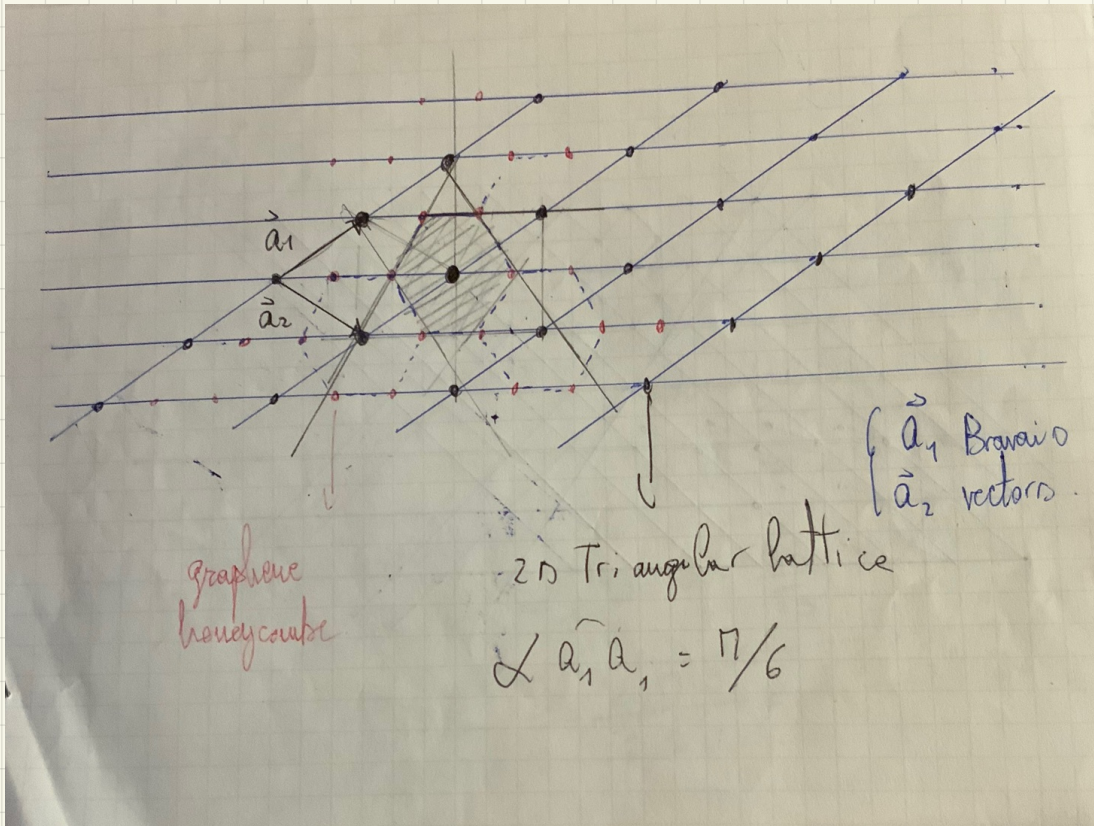 a⃗1
a⃗2
{ a⃗1 Bravais
a⃗2 vectors
graphene
honeycombe
2D Triangular lattice
∠ a1 a1 = π/6